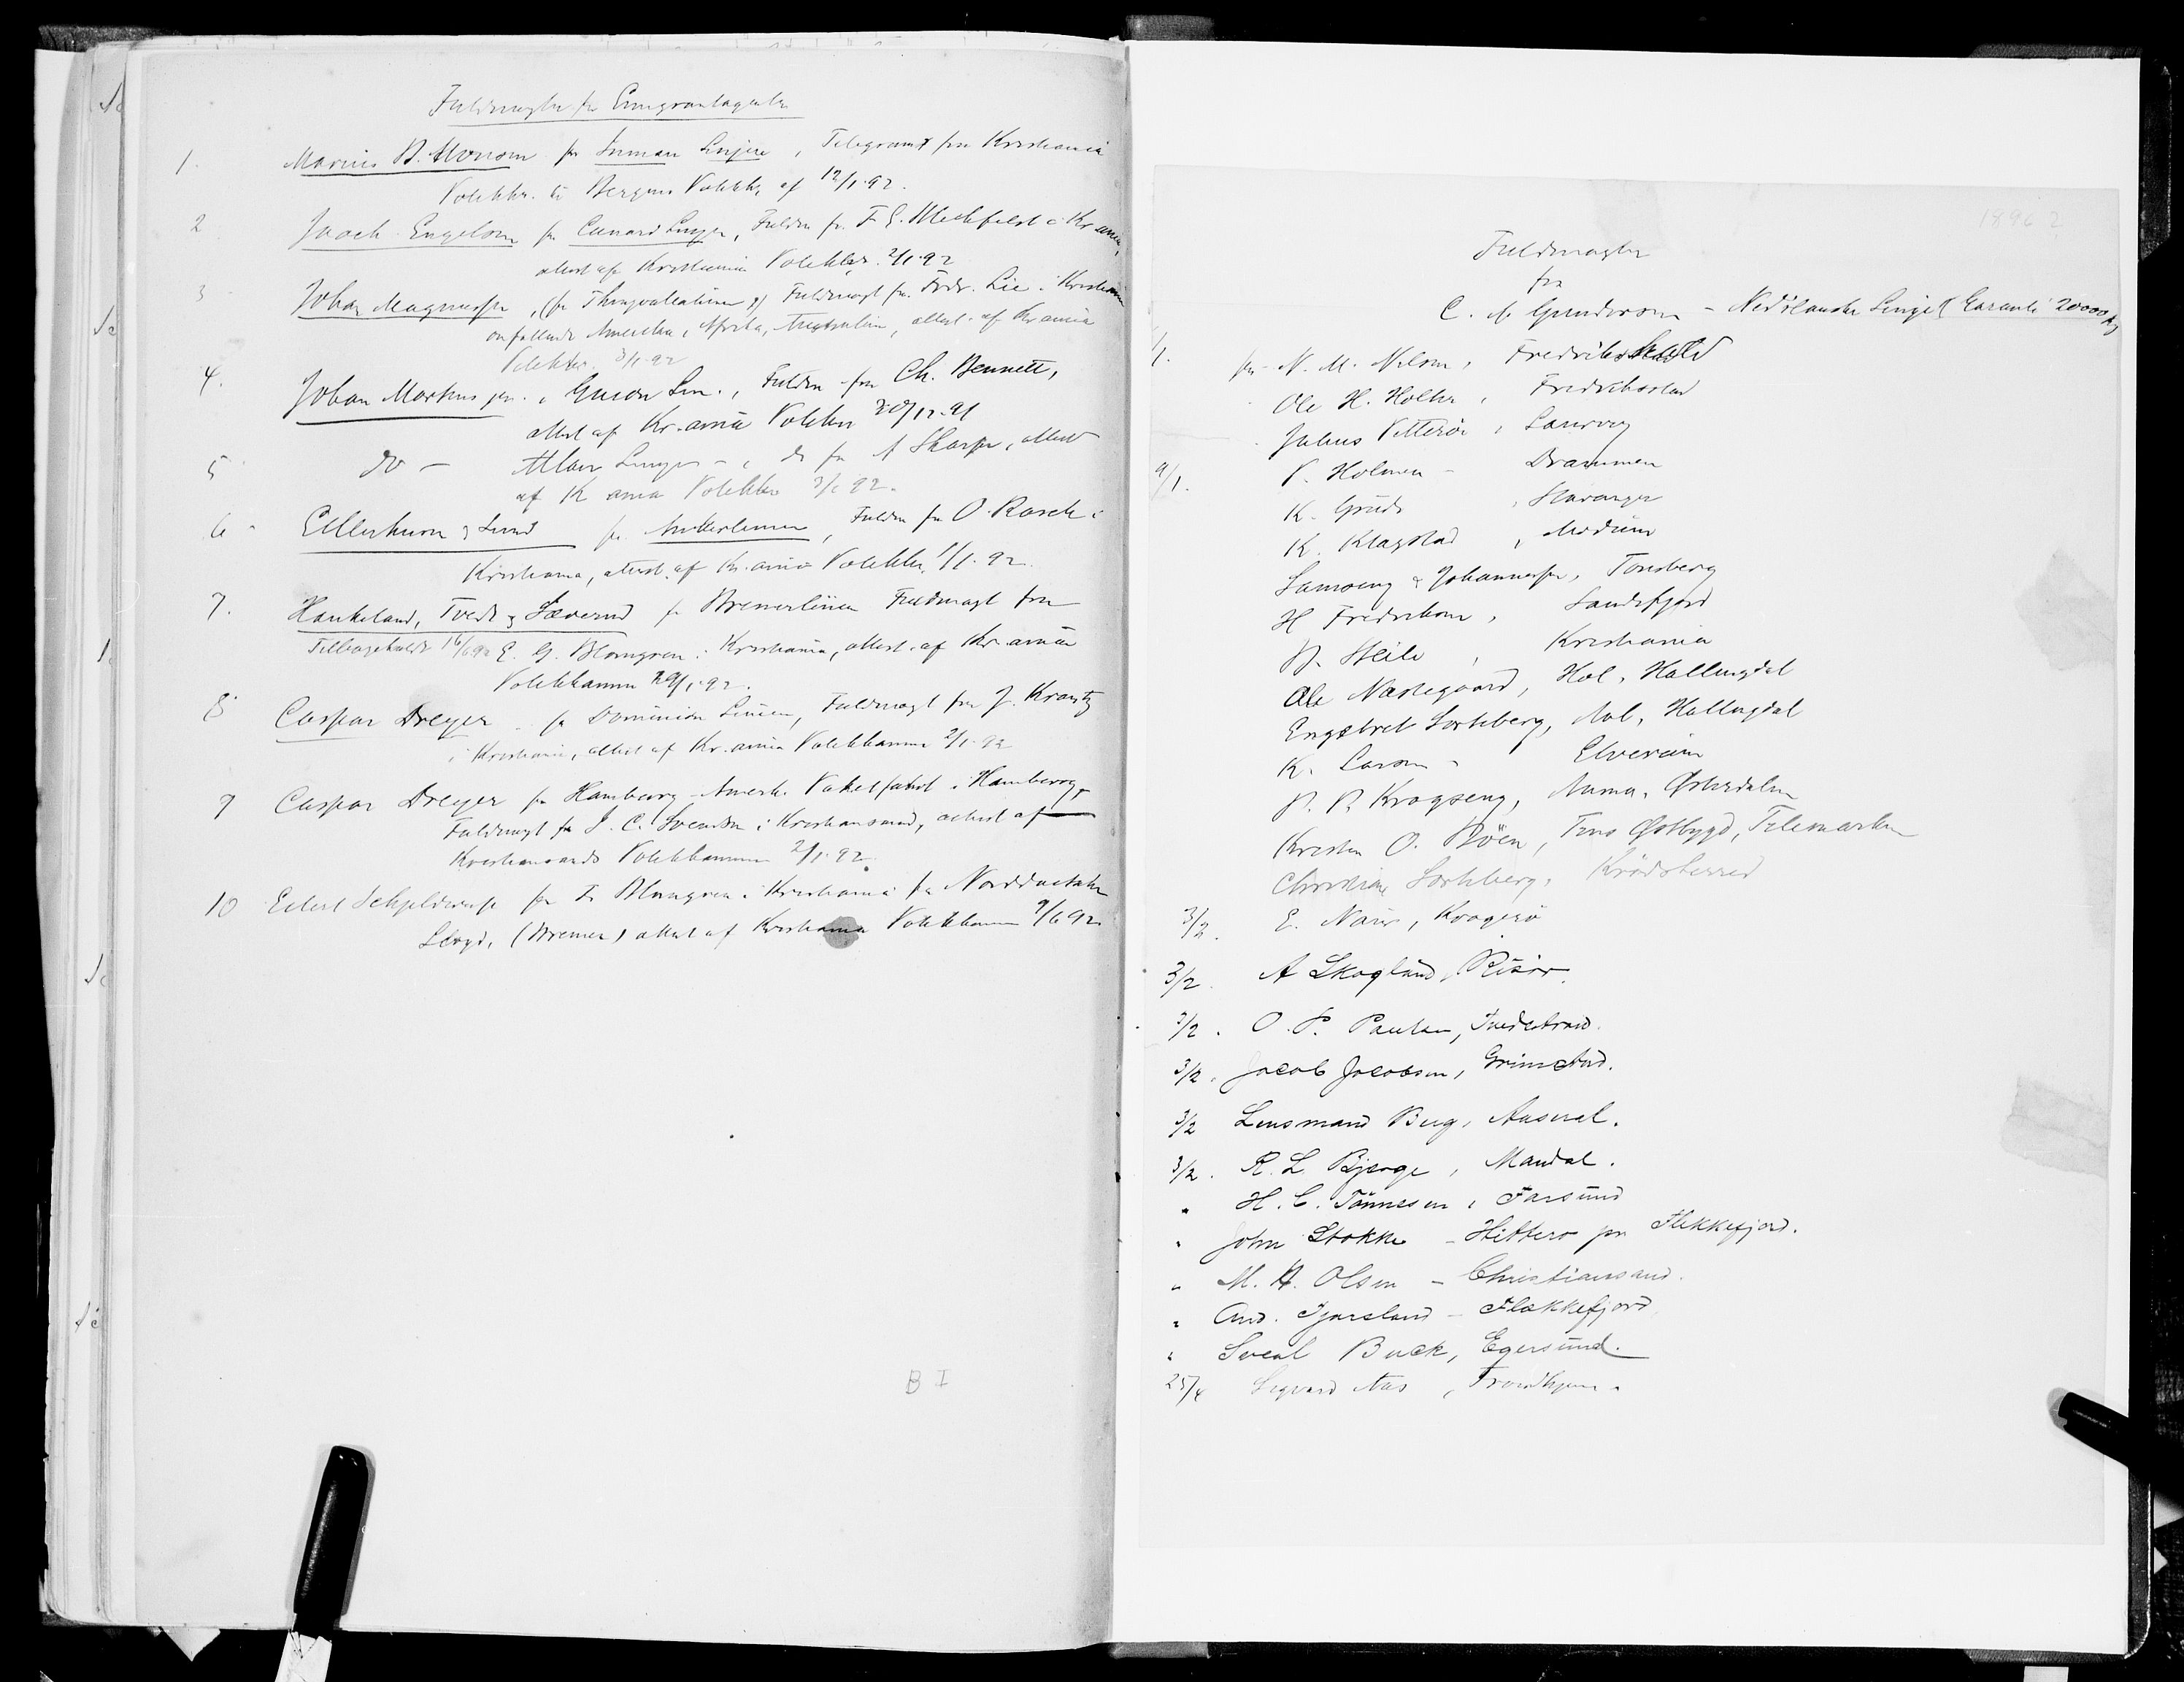 Fuldmagter for Emigrantagenter
1. Marius B. for Inman Linjen, Telegram fra Kristiania
Politikr. til Bergens Politik. af 12/1.92.
2 Jacob Engelsen for Cunard Linjen, Fuldm. fr. F. E. i Kr.ania,
attest af Kristiania Politikr. 2/1.92
3 Johan Magnussen, (for Thingvallalinien) Fuldmagt fra Fredr. Lie i Kristiania
omfattende Amerika, Afrika, Australien, attest. af Kr.ania
Politikr. 3/1.92
4. Johan Martens jun., Guion Lin., Fuldm fra Ch. Bennett,
attest af Kr.ania Politikr 30/12.91
5 do - Allan Linjen -, do fra A Sharpe, attest
af Kr ania Politikr 2/1 92.
6 Ellerhusen & Lund for Ankerlinien, Fuldm fra O. Rasch i
Kristiania, attest. af Kr.ania Politikr. 1/1.92.
7. Haukeland, Tvedt & Sævernd f. Bremerlinien Fuldmagt fra
Tilbagekaldt 16/6 92 E. G. Blomgren i Kristiania, attest. af Kr.ania
Politikammer 29/1.92.
8 Caspar Dreyer for Dominion Linien, Fuldmagt fra J. Krantz
i Kristiania, attest af Kr.ania Politikammer 2/1.92
9 Caspar Dreyer for Hamburg-Amerk. Paketfahrt i Hamburg,
Fuldmagt fra S. C. Svendsen i Kristiansand, attest af
Kristiansands Politikammer 2/1.92.
10 Eilert Schjelderup for Fr Blomgren i Kristiania for Norddeutscher
Lloyd, (Bremen) attest af Kristiania Politikammer 9/6 92.
B I
1896 ?
Fuldmagter
fra
C. Gundersen - Nedrlandsk Linje (Garanti 20000 Kr)
1/1. for N. M. Nilsen, Fredrikshald
Ole H. Holter, Fredriksstad
Julius Vetterøe, Laurvig
9/1. P. Holmen - Drammen
K. Grude, Stavanger
K. Klagstad, Modum
Samseng & Johannessen, Tønsberg
H Fredriksen, Sandefjord
Kristiania
Ole Nastegaard, Hol, Hallingdal
Engebret Sorteberg, Aal, Hallingdal
K. Larsen - Elverum
P. P. Krogseng, Tuna. Østerdalen
Kristen O. Bøen, Tins Østbygd, Telemarken
Christian Sorteberg, Krødsherred
3/2. E. Næss, Kragerø
3/2. A Skoglund, Risør.
3/2. O. P. Paulsen, Tvedestrand.
3/2. Jacob Jacobsen, Grimstad.
3/2 Lensmand Berg, Aaseral.
3/2. R. L. Bjerge, Mandal.
" H. C. Tönnesen, Farsund
" John Stokke - Hitterø pr Flekkefjord.
" M. A. Olsen - Christiansand.
" And. - Flækkefjord
" Sveal Buck, Egersund.
25/4 Sigvard Aas, Trondhjem.